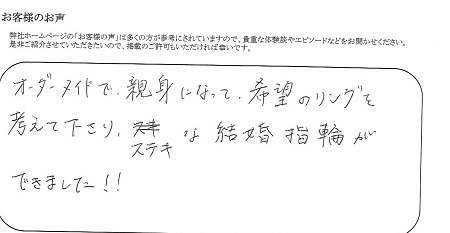 お客様のお声
弊社ホームページの「お客様の声」は多くの方が参考にされていますので、貴重な体験談やエピソードなどをお聞かせください。
是非ご紹介させていただきたいので、掲載のご許可もいただければ幸いです。
オーダーメイドで、親身になって、希望のリングを
考えて下さり、ステキな結婚指輪が
できました!!